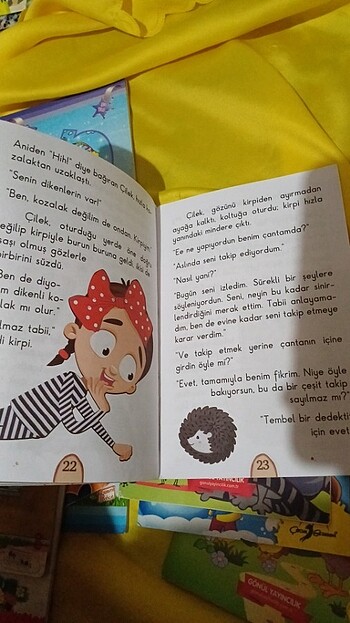 Aniden "Hihi" diye bağıran Çilek
zalaktan uzaklaştı.
"Senin dikenlerin var!"
"Ben, kozalak değilim de ondan. Kirpiyim."
Çilek, oturduğu yerde öne doğru
eğilip kirpiyle burun buruna geldi. İkisi de
şaşı olmuş gözlerle
birbirini süzdü.
Ben de diyo-
m dikenli ko-
lak mı olur."
lmaz tabii,"
i kirpi.
22
Çilek, gözünü kirpiden ayırmadan
ayağa kalktı, koltuğa oturdu; kirpi hızla
yanındaki mindere çıktı.
"Ee ne yapıyordun benim çantamda?"
"Aslında seni takip ediyordum."
"Nasıl yani?"
"Bugün seni izledim. Sürekli bir şeylere
söyleniyordun. Seni, neyin bu kadar sinir-
lendirdiğini merak ettim. Tabii anlayama-
dım, ben de evine kadar seni takip etmeye
karar verdim."
"Ve takip etmek yerine çantanın içine
girdin öyle mi?"
"Evet, tamamıyla benim fikrim. Niye öyle
bakıyorsun, bu da bir çeşit takip
sayılmaz mı?"
"Tembel bir dedekti
için evet
23
GÖNÜL YAYINCILIK
GÖNÜL YAYINCILIK